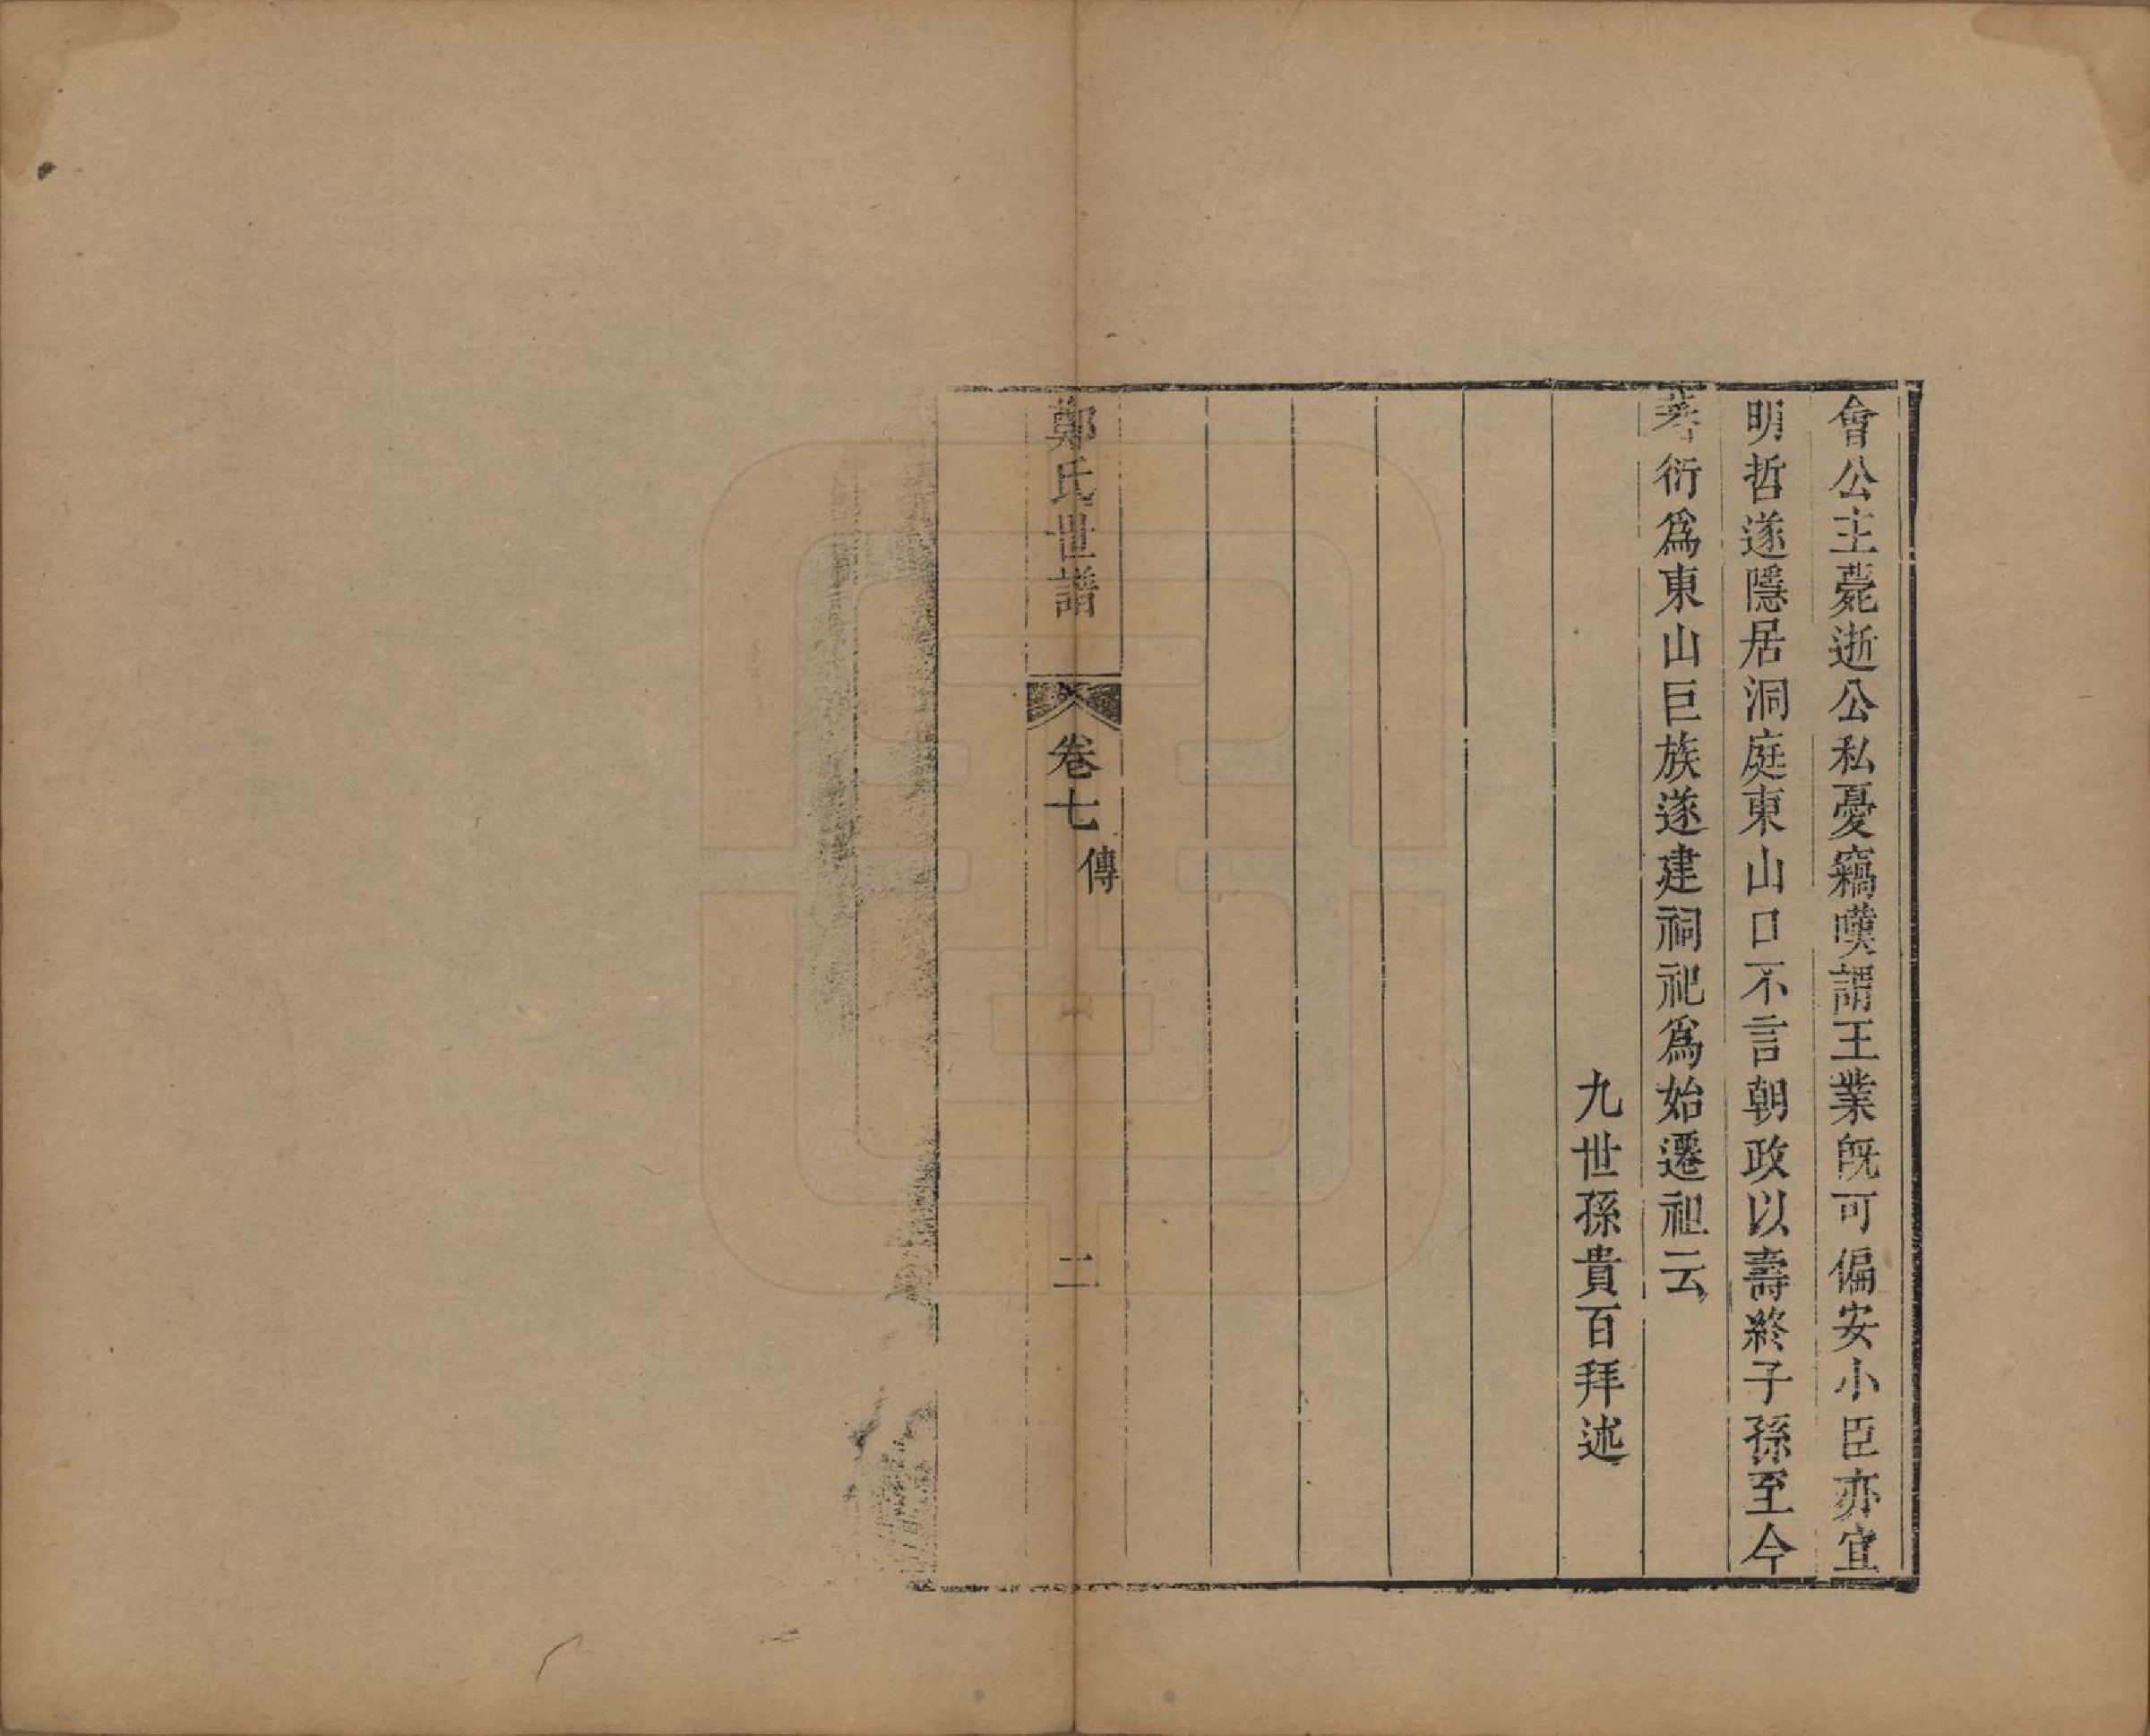 會公主薨逝公私憂竊嘆謂王業既可偏安小臣亦宜
明哲遂隱居洞庭東山口不言朝政以壽終子孫至今
蕃衍爲東山巨族遂建祠祀爲始遷祖云
九世孫貴百拜述
鄭氏世譜
卷七
傳
二